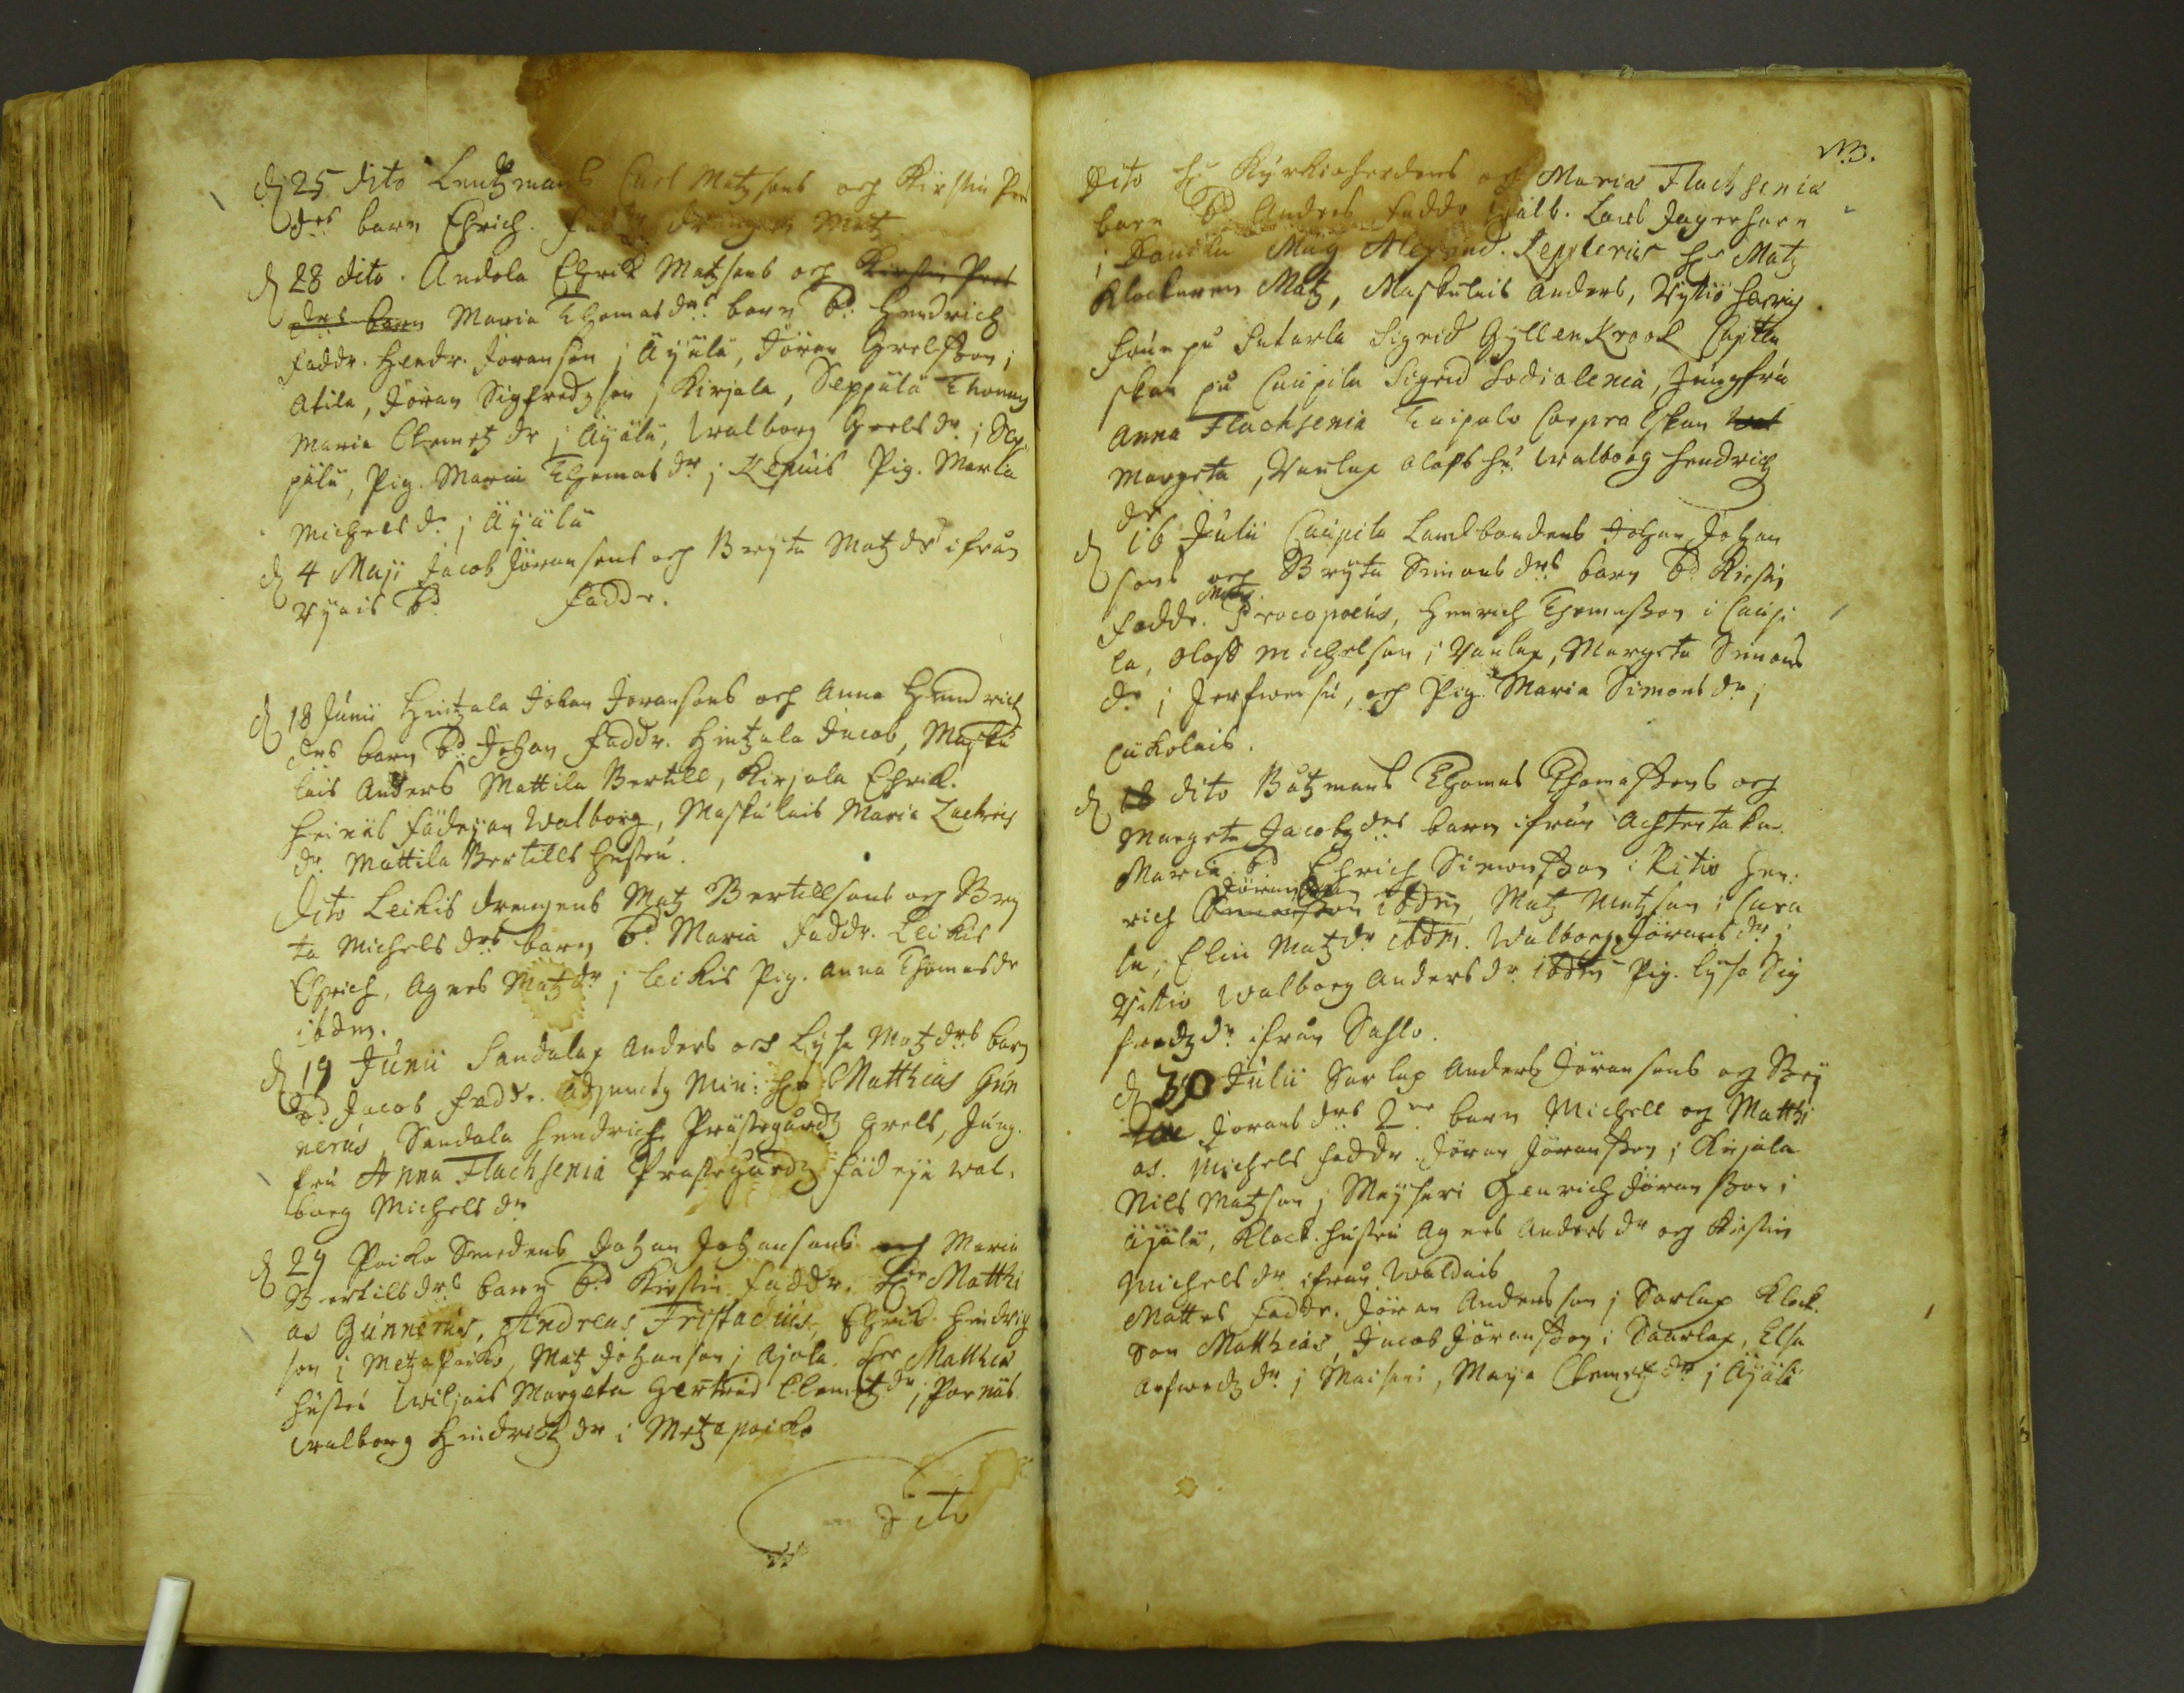 d 25 dito Lentzmans Carl Matzsons och Kirstin Per
drs barn Ehrich. faddr drengen Matz
d 28 dito. Andola Ehrick Matzsons och Kirstin Pers
drs barn Maria Thomas drs barn bd Hendrich
faddr. Hendr. Joransson j Äijälä, Jöran Grelsson j
Atila, Jöran Sigfredzson j Kirjala, Seppälä Thomas
Maria Clemetz dr j Äijälä, Walborg Grels dr j Sep
pälä, Pig. Maria Thomas dr j Lepais Pig. Maria
Michels dr j Äijälä
d 4 Maji Jacob Joransons och Bryta Matz drs ifrån
bd faddr.
d 18 Junii Hintzala Johan Joransons och Anna Hendrich
drs barn bd Johan faddr. Hintzala Jacob, Masku
lais Anders Mattila Bertill, Kirjala Ehrick.
Walborg, Maskulais Maria Zachris
dr. Mattila Bertills hustru.
Dito Leikis drengens Matz Bertillsons och Bry
ta Michels drs barn bd Maria faddr. Leikis
Ehrich, Agnes Matz dr j Leikis Pig. Anna Thomas dr
ibdm.
d 19 Junii Sandalax Anders och Lysa Matz drs barn
bd Jacob faddr. Adjuncty Min: Hr Matthias Gun
nerus, Sandala Hendrich Prästegårdz Grels, Jung.
fru Anna Flachsenia Prästegårdz Wal.
borg Michels dr
d 29 Paika Smedens Johan Johansons och Maria
Bertils drs barn bd Kirstin faddr. Hr Matthi
as Gunnerus, Andreas Fristadius, Ehrick Hindrig
son j Metzäpaiko, Matz Johanson j Ajola. Hr Matthia
hustru Wiljais Margeta Gertrud Clemetz dr j Parnäs
Walborg Hindrich dr i Metzäpaiko
Dito
NB.
Dito Hr Kyrkioherdens och Maria Flachsenia
barn bd Andres faddr Wälb. Lars Jagerhorn
j Mag Alexand. Lepplerus Hr Matz
Klockaren Matz, Maskulais Anders,
fruen på Sutarla Sigrid Gyllenkrook Capitte
skan på Caupila Sigrid Sodialenia, Jungfru
Anna Flachsenia Taipalo Corpralskan Wal
Margeta, Vanlax Olofs hu Walborg Hendrich
dr
d 16 Julii Caupila Landbondens Johan Johan
sons och Bryta Simons drs barn bd Kirstin
faddr. Matz Procopoeus, Henrich Thomasson i Caupi
la, Oloff Michelson j Vanlax, Margeta Simons
dr j och Pig. Maria Simons dr j
Cukolais.
d 18 dito Båtzmans Thomas Thomassons och
Margeta Jacobz drs barn ifrån Achtertaka
Maria bd Ehrich Simonsson i Ritio Hen:
rich Simonsson Jöransson ibdm, Matz Matzson i Cura
la, Elin Matz dr ibdm. Walborg Jörans dr j
Walborg Anders dr ibdm Pig. Lysa Sig
fredz dr ifrån Sahlo.
d 30 Julii Sarlax Anders Jöransons och Bry
tae Jorans drs 2ne barn Michell och Matthi
as. Michels faddr. Jöran Jöransson j Kirjala
Nils Matzson j Maysari Henrich Jöransson i
Äijälä, Klock. hustru Agnes Anders dr och Kirstin
Michels dr ifrån Waldais
Mattes faddr. Jöran Andersson j Sarlax Klock.
son Matthias, Jacob Jöransson i Saarlax, Elsa
Arfwedz dr j Maisari, Maya Clemetz dr j Äijälä